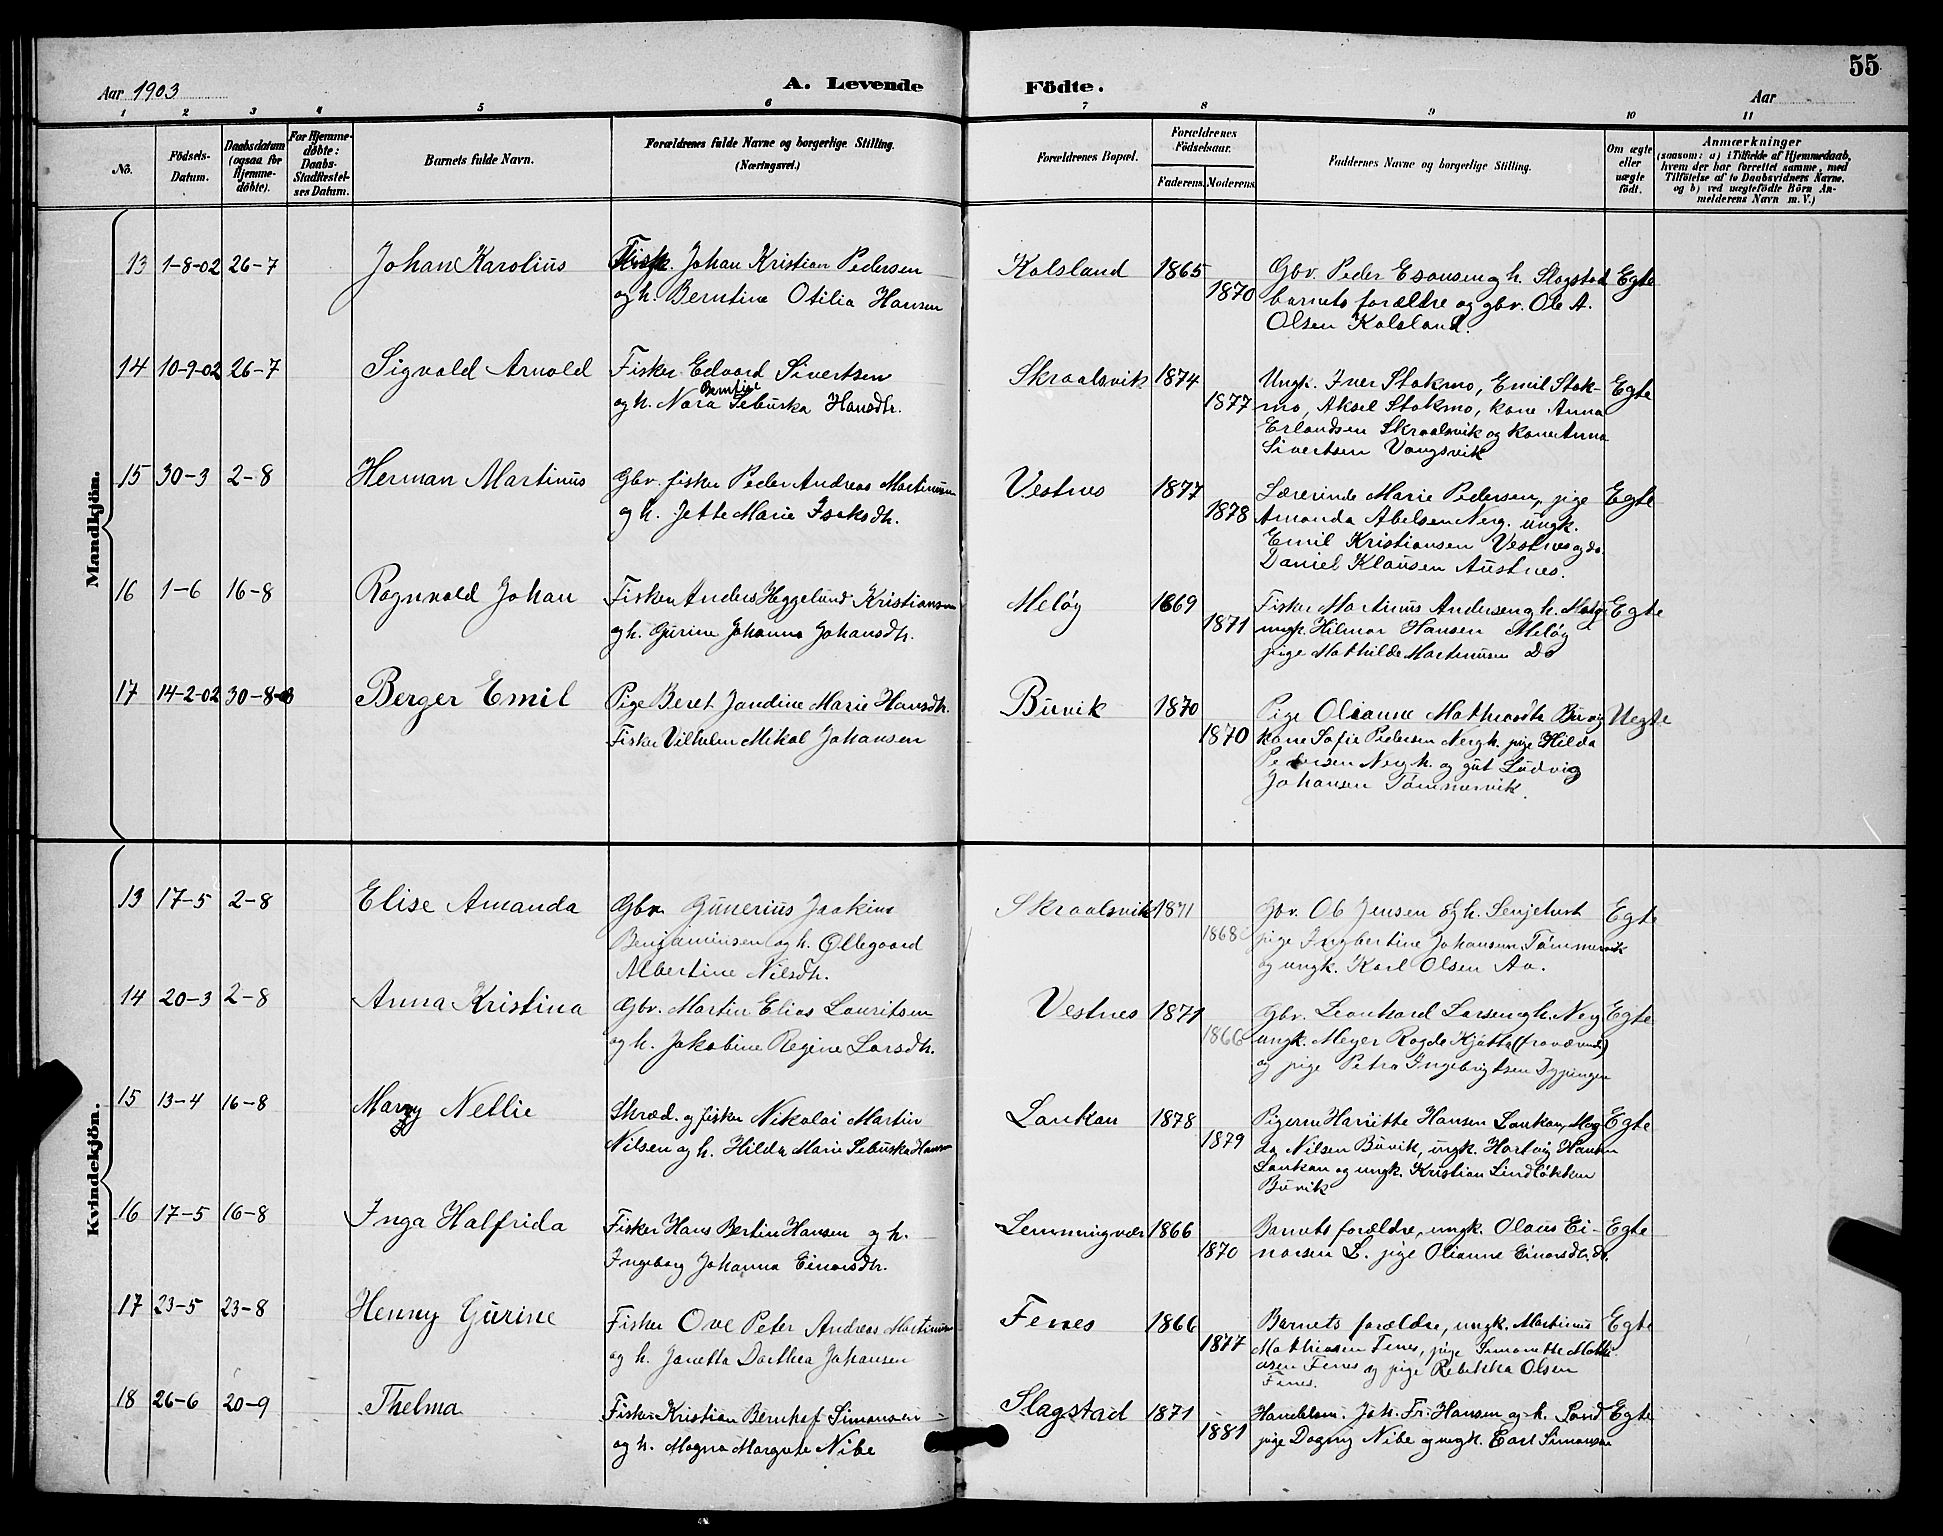 55
Aar 1903
A. Levende
Födte.
Aar
1 2 3 4 5 6 7 8 9 10 11
No.
Födsels-Datum.
Daabsdatum (ogsaa for Hjemme-döbte).
For Hjemme-døbte: Daabs-Stadfæstelses Datum.
Barnets fulde Navn.
Forældrenes fulde Navne og borgerlige Stilling.
(Næringsvei.)
Forældrenes Bopæl.
Forældrenes Födselsaar.
Faderens.
Moderens.
Faddernes Navne og borgerlige Stilling.
Om ægte eller uægte födt.
Anmærkninger
(saasom: a) i Tilfælde af Hjemmedaab,
hvem der har forrettet samme, med
Tilföielse af to Daabsvidners Navne.
og b) ved uægtefödte Börn An-
melderens Navn m. V.)
Mandkjön.
13 1-8-02 26-7 Johan Karolius
Fisk. Johan Kristian Pedersen
og h. Berntine Otilia Hansen
Kalsland 1865 1870
Gbr. Peder Esausen og h. Slagstad
barnets forældre og gbr. Ole A.
Olsen Kalsland.
Egte
14 10-9-02 26-7 Sigvald Arnold
Fisker Edvard Sivertsen
og h. Nora Berntine Sebuska Hansdtr.
Skraalsvik 1874 1877
Ungk. Iver Stokmo, Emil Stok-
mo, Aksel Stokmo, kone Anna
Erlandsen Skraalsvik og kone Anna
Sivertsen Vangsvik
Egte
15 30-3 2-8 Herman Martinus
Gbr. fisker Peder Andreas Martinusen
og h. Jette Marie Isaksdtr.
Vestnes 1877 1878
Lærerinde Marie Pedersen, pige
Amanda Abelsen Nerg. ungk.
Emil Kristiansen Vestnes og do.
Daniel Klausen Austnes.
Egte
16 1-6 16-8 Ragnvald Johan
Fisker Anders Heggelund Kristiansen
og h. Gurine Johanna Johansdtr.
Meløy 1869 1871
Fisker Martinus Andersen og h. Meløy
ungk. Hilmar Hansen Meløy
pige Mathilde Martinusen Do
Egte
17 14-2-02 30-8-03 Berger Emil
Pige Beret Jandine Marie Hansdtr.
Fisker Vilhelm Mikal Johansen
Buvik 1870 1870
Pige Olianne Buvig
kone Sofie Pedersen Nergh. pige Hilda
Pedersen Nergh. og gut Ludvig
Johansen Tømmervik.
Uegte
Kvindekjön.
13 17-5 2-8 Elise Amanda
Gbr. Gunerius Joakim
Benjaminsen og h. Ollegaard
Albertine Nilsdtr.
Skraalsvik 1871 1868
Gbr. Ole Jensen og h. Senjehest
pige Ingbertine Johansen Tømmervik
og ungk. Karl Olsen Aa.
Egte
14 20-3 2-8 Anna Kristina
Gbr. Martin Elias Lauritsen
og h. Jakobine Regine Larsdtr.
Vestnes 1871 1866
Gbr. Leonhard Larsen og h. Nerg
ungk. Meyer Rogde Kjøtta (fraværende)
og pige Petra Ingebrigtsen
Egte
15 13-4 16-8 Mary Nellie
Skræd. og fisker Nikolai Martin
Nilsen og h. Hilda Marie Sebuska Hansen
Laukan 1878 1879
Pigerne Hariette Hansen Laukan, Mag-
da Nilsen Buvik, ungk. Hartvig Hansen
Laukan og ungk. Kristian Lindløkken
Buvik
Egte
16 17-5 16-8 Inga Halfrida
Fisker Hans Bertin Hansen og h.
Ingeborg Johanna Einarsdtr.
Lemmingvær 1866 1870
Barnets forældre, ungk. Olaus Ei-
narsen L. pige Olianne Einarsdtr. do.
Egte
17 23-5 23-8 Henny Gurine
Fisker Ove Peter Andreas Martinusen
og h. Janetta Dorthea Johansen
Fenes 1866 1877
Barnets forældre, ungk. Martinus
Mathiasen Fenes, pige Simonette Mathi-
asen Fenes og pige Rebekka Olsen
Fenes.
Egte
18 26-6 20-9 Thelma
Fisker Kristian Bernhof Simonsen
og h. Magna Margrete Nibe
Slagstad 1871 1881
Handelsm. Joh. Fr. Hansen og h. Sand
pige Dagny Nibe og ungk. Earl Simonsen
Egte